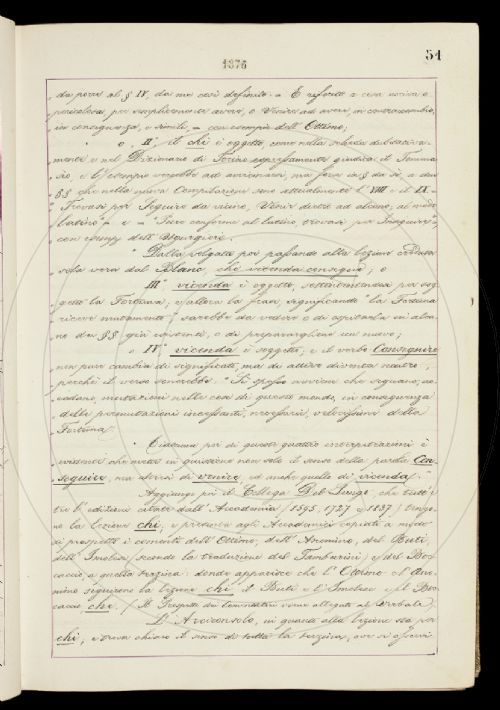 1876
51
da porre al § IV, da me così definito: = E riferito a cosa nociva o
pericolosa, per semplicemente avere, o Venire ad avere, in contraccambio,
in conseguenza, e simili, = con esempio dell'Ottimo;
o II° il chi è oggetto, come nella scheda
mente e nel Dizionario di Torino espressamente giudica il Tomma
séo, e l'esempio verrebbe ad avvicinarsi, ma fare da § da sè, a due
§§ che nella nuova Compilazione sono attualmente l'VIII e il IX =
Trovasi per Seguire da vicino, Venir dietro ad alcuno, al modo
latino = e = Pure conforme al latino, trovasi per Inseguire =
con esempj dell'Ugurgieri.
Dalla volgata poi passando alla lezione creduta
sola vera dal Blanc, che vicenda consegue; o
III° vicenda è oggetto, sottointendendo per sog
getto la Fortuna, e allora la frase significando "la Fortuna
riceve mutamento" sarebbe da vedere o di ospitarla in alcu
no dei §§ già esistenti, o di preparargliene un nuovo;
o IV° vicenda è soggetto, e il verbo Conseguire
non pure cambia di significato, ma di attivo diventa neutro,
perchè il verso sonerebbe: "Sì spesso avviene che seguano, ac
cadano, mutazioni nelle cose di questo mondo, in conseguenza
delle permutazioni incessanti, necessarie, velocissime della
Fortuna.
Ciascuna poi di queste quattro interpretazioni è
evidente che mette in quistione non solo il senso della parola Con
seguire, ma altresì di venire, ed anche quello di vicenda.
Aggiunge poi il Collega Del Lungo, che tutte e
tre l'edizioni citate dall'Accademia (1595, 1727 e 1837) tengo
no la lezione chi, e presenta agli Accademici copiati a modo
di prospetto i comenti dell'Ottimo, dell'Anonimo, del Buti,
dell'Imolese (secondo la traduzione del Tamburini) e del Boc
caccio, a questa terzina: donde apparisce che l'Ottimo e l'Ano
nimo seguirono la lezione chi il Buti e l'Imolese e il Boc
caccio che. (Il Prospetto dei Comentatori viene allegato al Verbale).
L'Arciconsolo, in quanto alla lezione sta per
chi, e trova chiaro il senso di tutta la terzina, ove si osservi